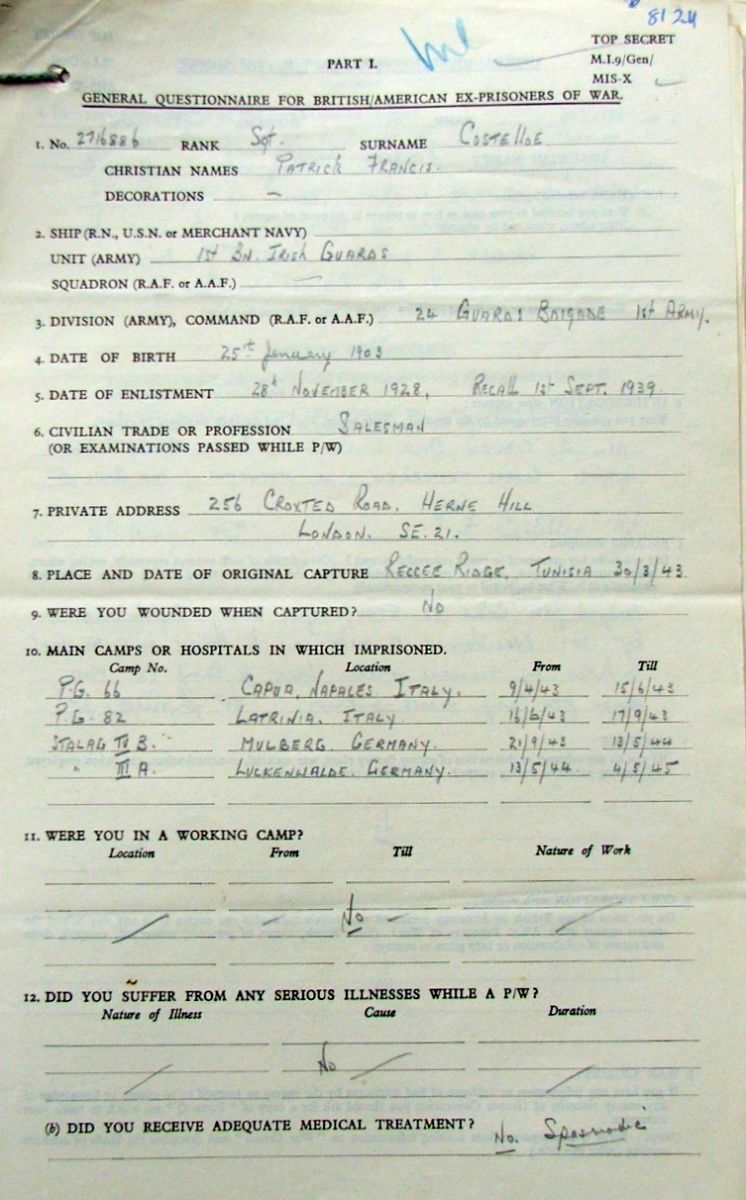 8124
TOP SECRET
PART I. M.I.9/Gen/
MIS-X
GENERAL QUESTIONNAIRE FOR BRITISH/AMERICAN EX-PRISONERS OF WAR.
1. No. 2716886 RANK Sgt. SURNAME COSTELLOE
CHRISTIAN NAMES PATRICK FRANCIS.
DECORATIONS —
2. SHIP (R.N., U.S.N. or MERCHANT NAVY)
UNIT (ARMY) 1st BN. IRISH GUARDS
SQUADRON (R.A.F. or A.A.F.) —
3. DIVISION (ARMY), COMMAND (R.A.F. or A.A.F.) 24 GUARDS BRIGADE 1st ARMY.
4. DATE OF BIRTH 25th January 1903
5. DATE OF ENLISTMENT 28th NOVEMBER 1928, RECALL 1st SEPT. 1939.
6. CIVILIAN TRADE OR PROFESSION SALESMAN
(OR EXAMINATIONS PASSED WHILE P/W)
7. PRIVATE ADDRESS 256 CROXTED ROAD. HERNE HILL
LONDON. SE.21.
8. PLACE AND DATE OF ORIGINAL CAPTURE RECCEE RIDGE, TUNISIA 30/3/43
9. WERE YOU WOUNDED WHEN CAPTURED? NO
10. MAIN CAMPS OR HOSPITALS IN WHICH IMPRISONED.
Camp No. Location From Till
P.G. 66 CAPUA, NAPALES, ITALY. 9/4/43 15/6/43
P.G. 82 LATRINIA. ITALY 16/6/43 17/9/43
STALAG IV B. MULBERG. GERMANY. 21/9/43 13/5/44
" III A. LUCKENWALDE. GERMANY. 13/5/44. 4/5/45
11. WERE YOU IN A WORKING CAMP?
Location From Till Nature of Work
No
12. DID YOU SUFFER FROM ANY SERIOUS ILLNESSES WHILE A P/W?
Nature of Illness Cause Duration
No
(b) DID YOU RECEIVE ADEQUATE MEDICAL TREATMENT? No. Spasmodic